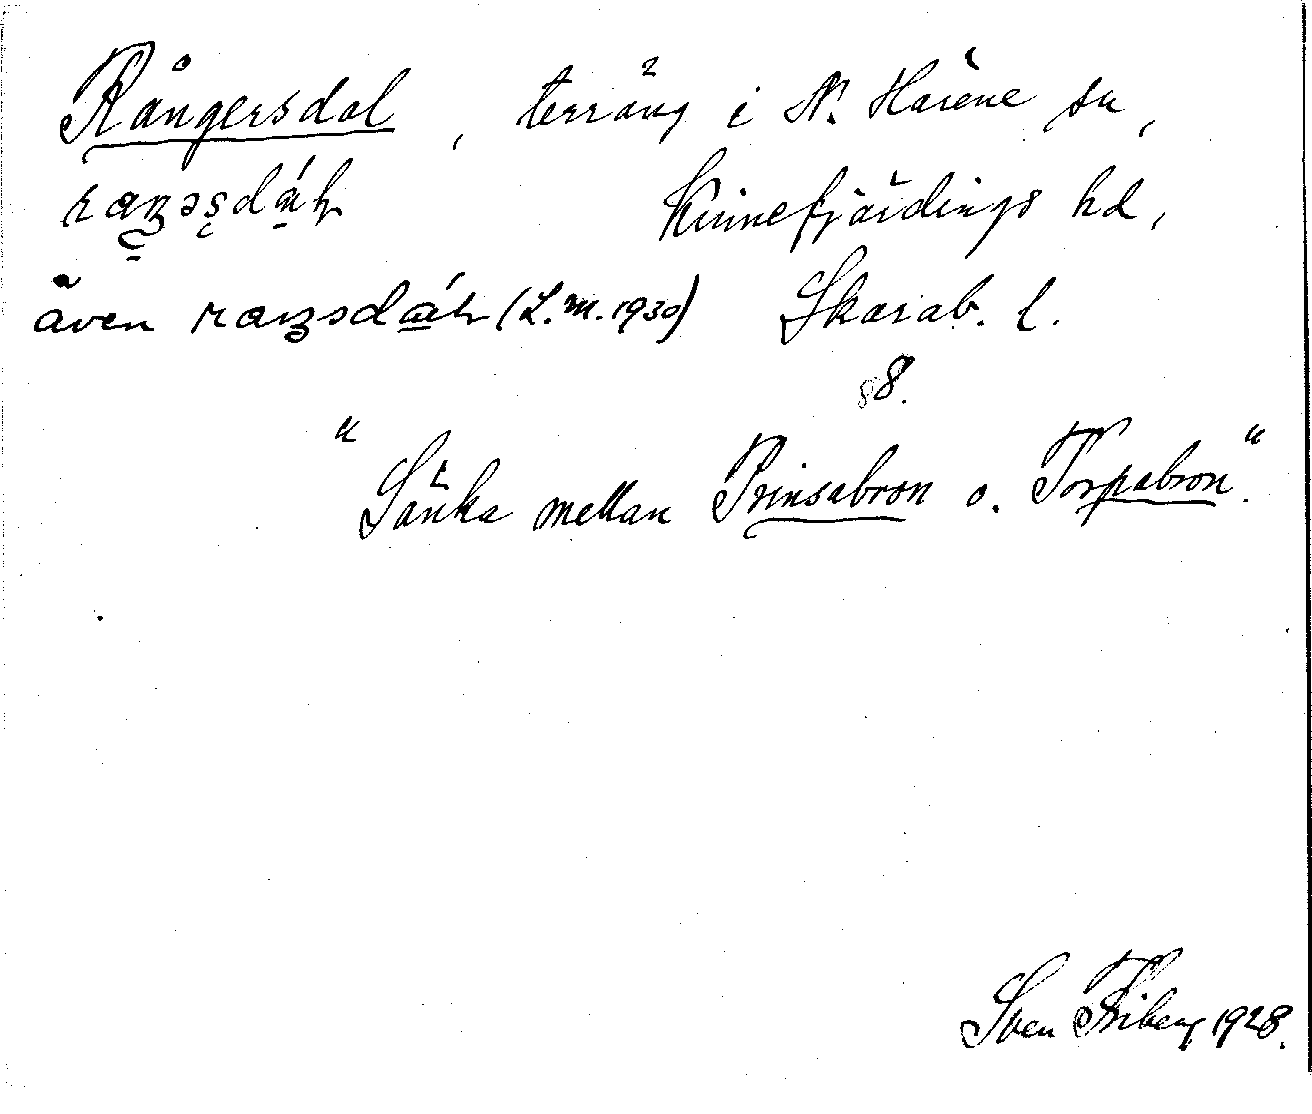 Rångersdal, terräng i N. Härene sn,
Kinnefjärdings hd,
även (L.M. 1930) Skarab. l.
88.
"Sänka mellan Prinsabron o. Torpabron".
Sven Friberg 1928.